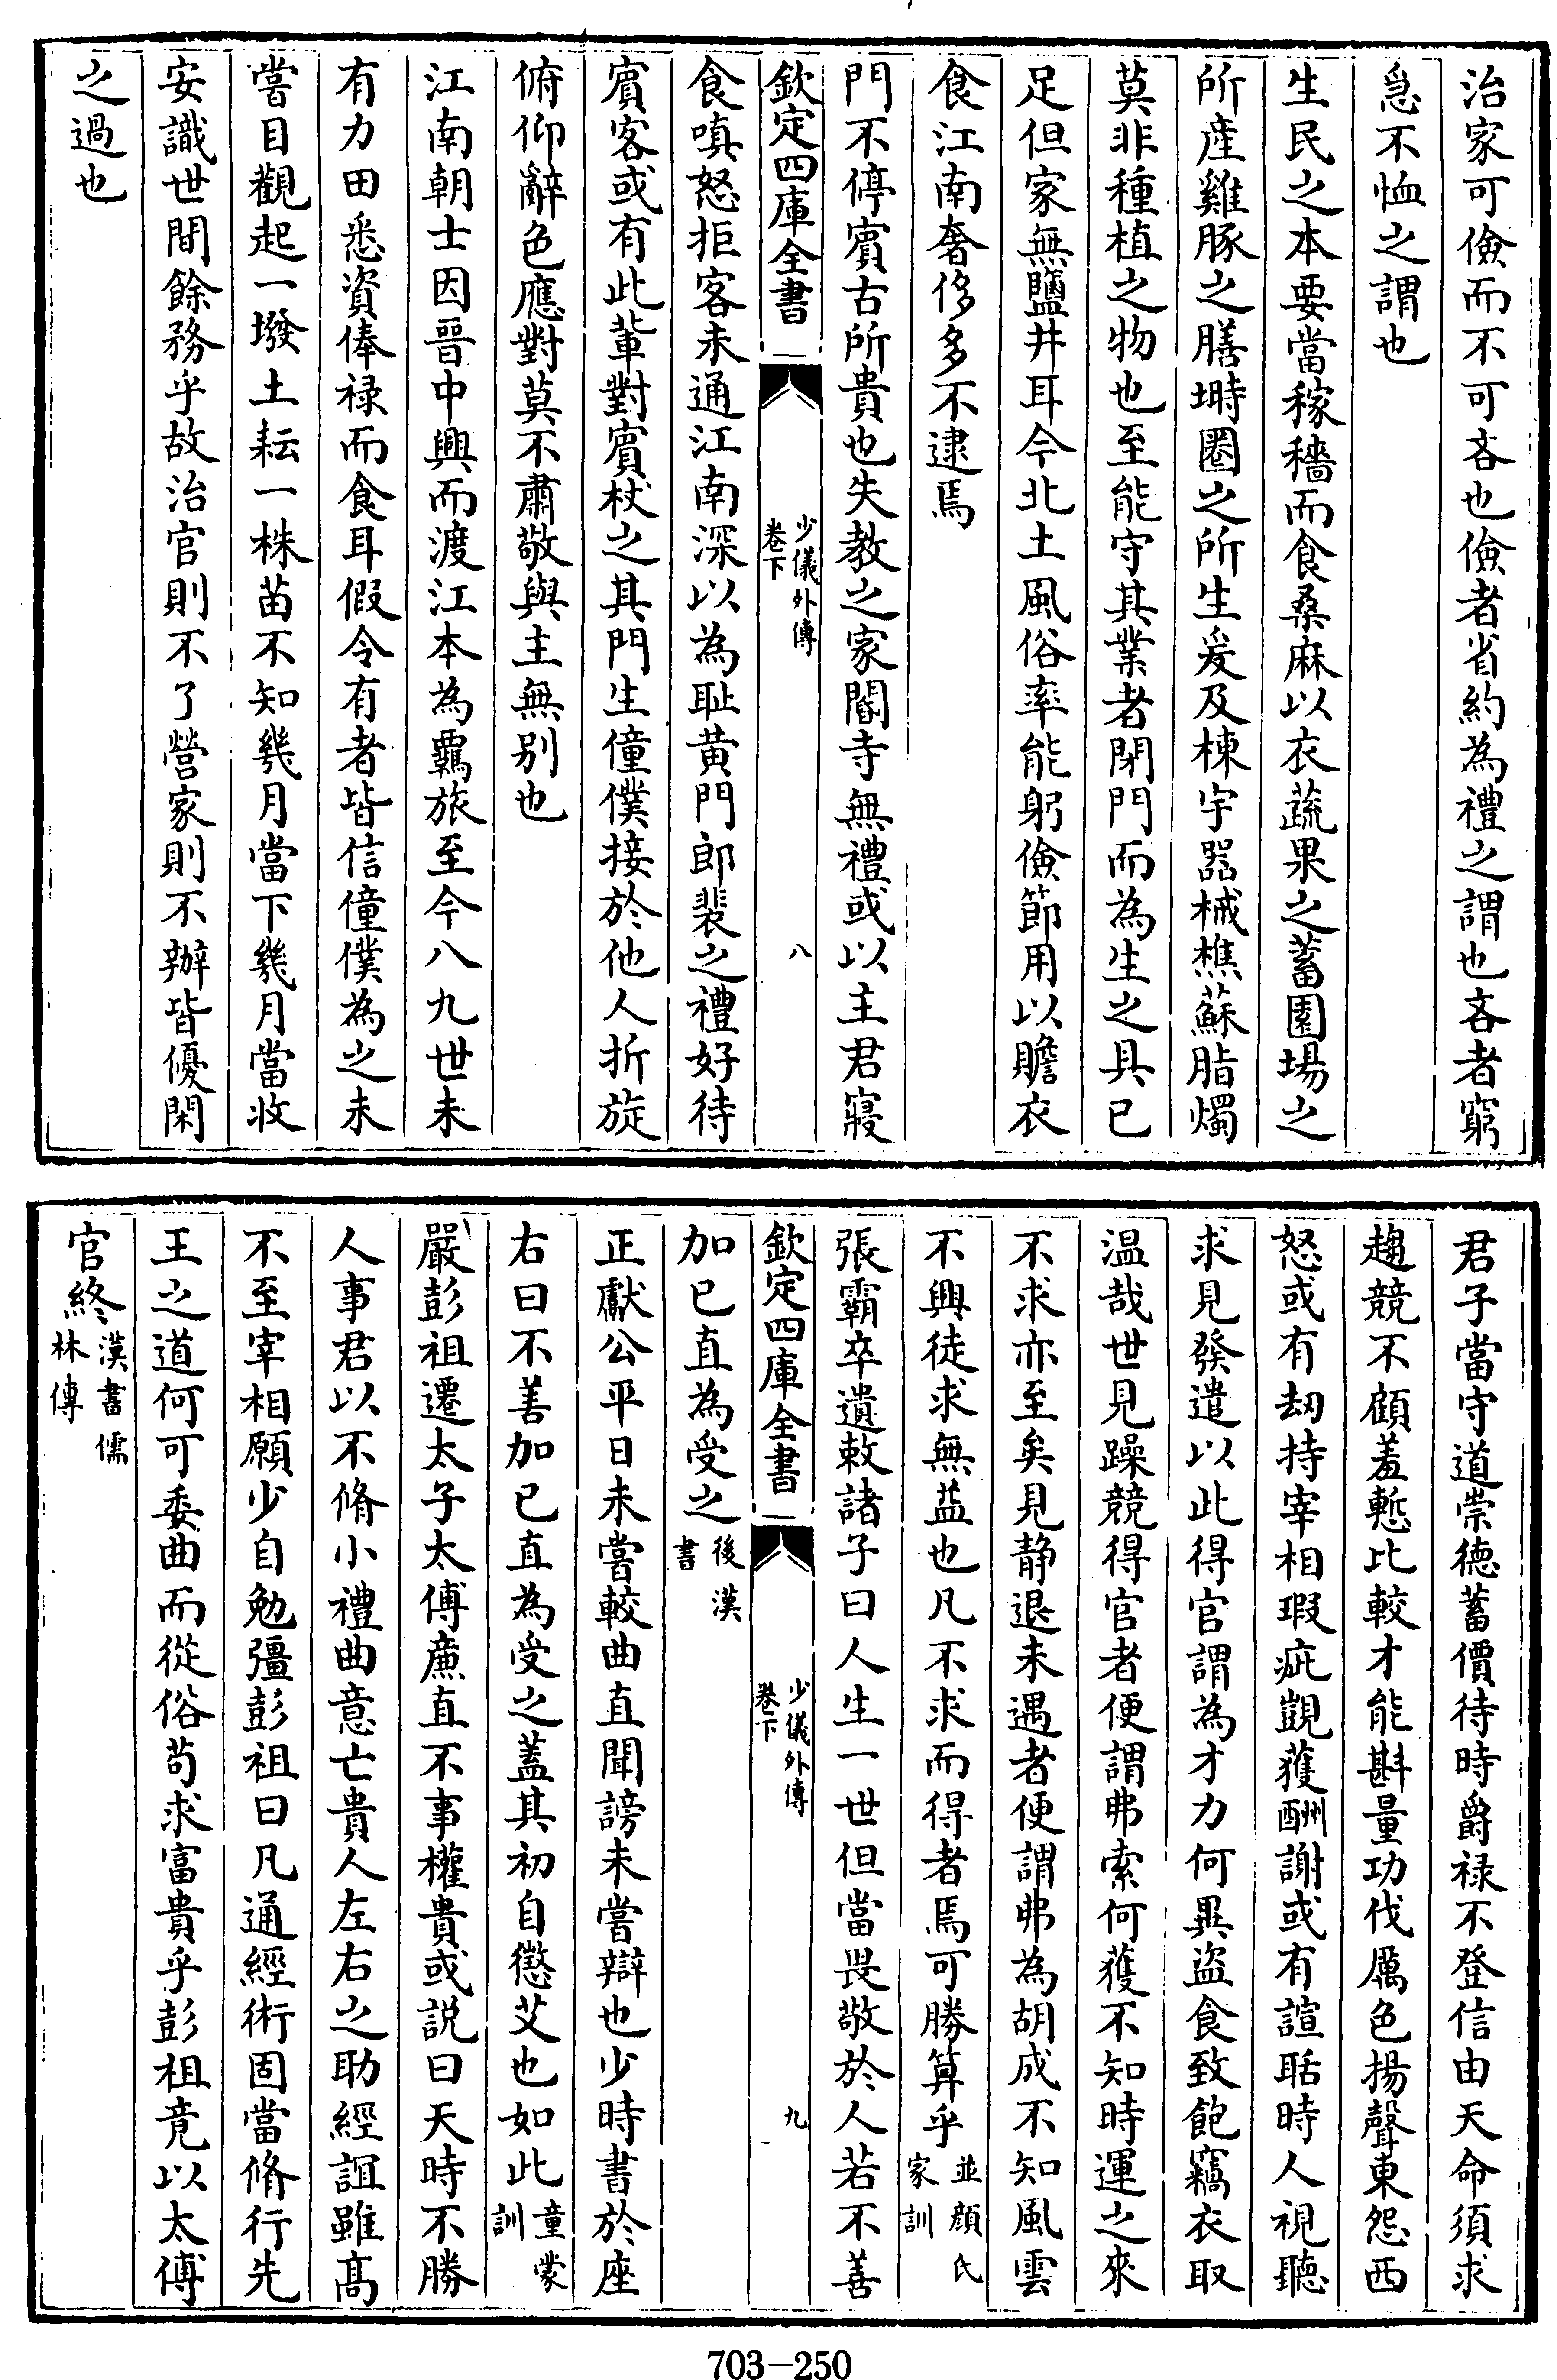 治家可儉而不可吝也儉者省約為禮之謂也吝者窮
急不恤之謂也
生民之本要當稼穡而食桑麻以衣蔬果之蓄園場之
所產雞豚之膳塒圈之所生爰及棟宇器械樵蘇脂燭
莫非種植之物也至能守其業者閉門而為生之具已
足但家無鹽井耳今北土風俗率能躬儉節用以贍衣
食江南奢侈多不逮焉
門不停賓古所貴也失教之家閽寺無禮或以主君寢
欽定四庫全書
少儀外傳
卷下
八
食嗔怒拒客未通江南深以為恥黄門郎裴之禮好待
賓客或有此輩對賓杖之其門生僮僕接於他人折旋
俯仰辭色應對莫不肅敬與主無别也
江南朝士因晉中興而渡江本為羈旅至今八九世未
有力田悉資俸禄而食耳假令有者皆信僮僕為之未
嘗目觀起一墢土耘一株苗不知幾月當下幾月當收
安識世間餘務乎故治官則不了營家則不辦皆優閑
之過也
君子當守道崇德蓄價待時爵禄不登信由天命須求
趨競不顧羞慙比較才能斟量功伐厲色揚聲東怨西
怒或有刼持宰相瑕疵覬獲酬謝或有諠聒時人視聽
求見發遣以此得官謂為才力何異盜食致飽竊衣取
温哉世見躁競得官者便謂弗索何獲不知時運之來
不求亦至矣見静退未遇者便謂弗為胡成不知風雲
不興徒求無益也凡不求而得者焉可勝算乎並顔氏
家訓
張霸卒遺敕諸子曰人生一世但當畏敬於人若不善
欽定四庫全書
少儀外傳
卷下
九
加已直為受之後漢
書
正獻公平日未嘗較曲直聞謗未嘗辯也少時書於座
右曰不善加已直為受之蓋其初自懲艾也如此童蒙
訓
嚴彭祖遷太子太傅亷直不事權貴或説曰天時不勝
人事君以不脩小禮曲意亡貴人左右之助經誼雖髙
不至宰相願少自勉彊彭祖曰凡通經術固當脩行先
王之道何可委曲而從俗苟求富貴乎彭祖竟以太傅
官終漢書儒
林傳
703-250